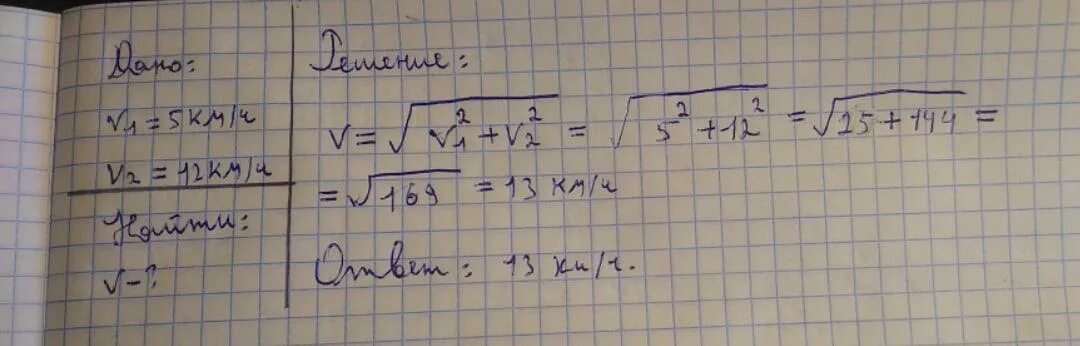 Дано:
v₁ = 5 км/ч
v₂ = 12 км/ч
Найти:
v - ?
Решение:
v = √(v₁² + v₂²) = √(5² + 12²) = √(25 + 144) =
= √169 = 13 км/ч
Ответ: 13 км/ч.